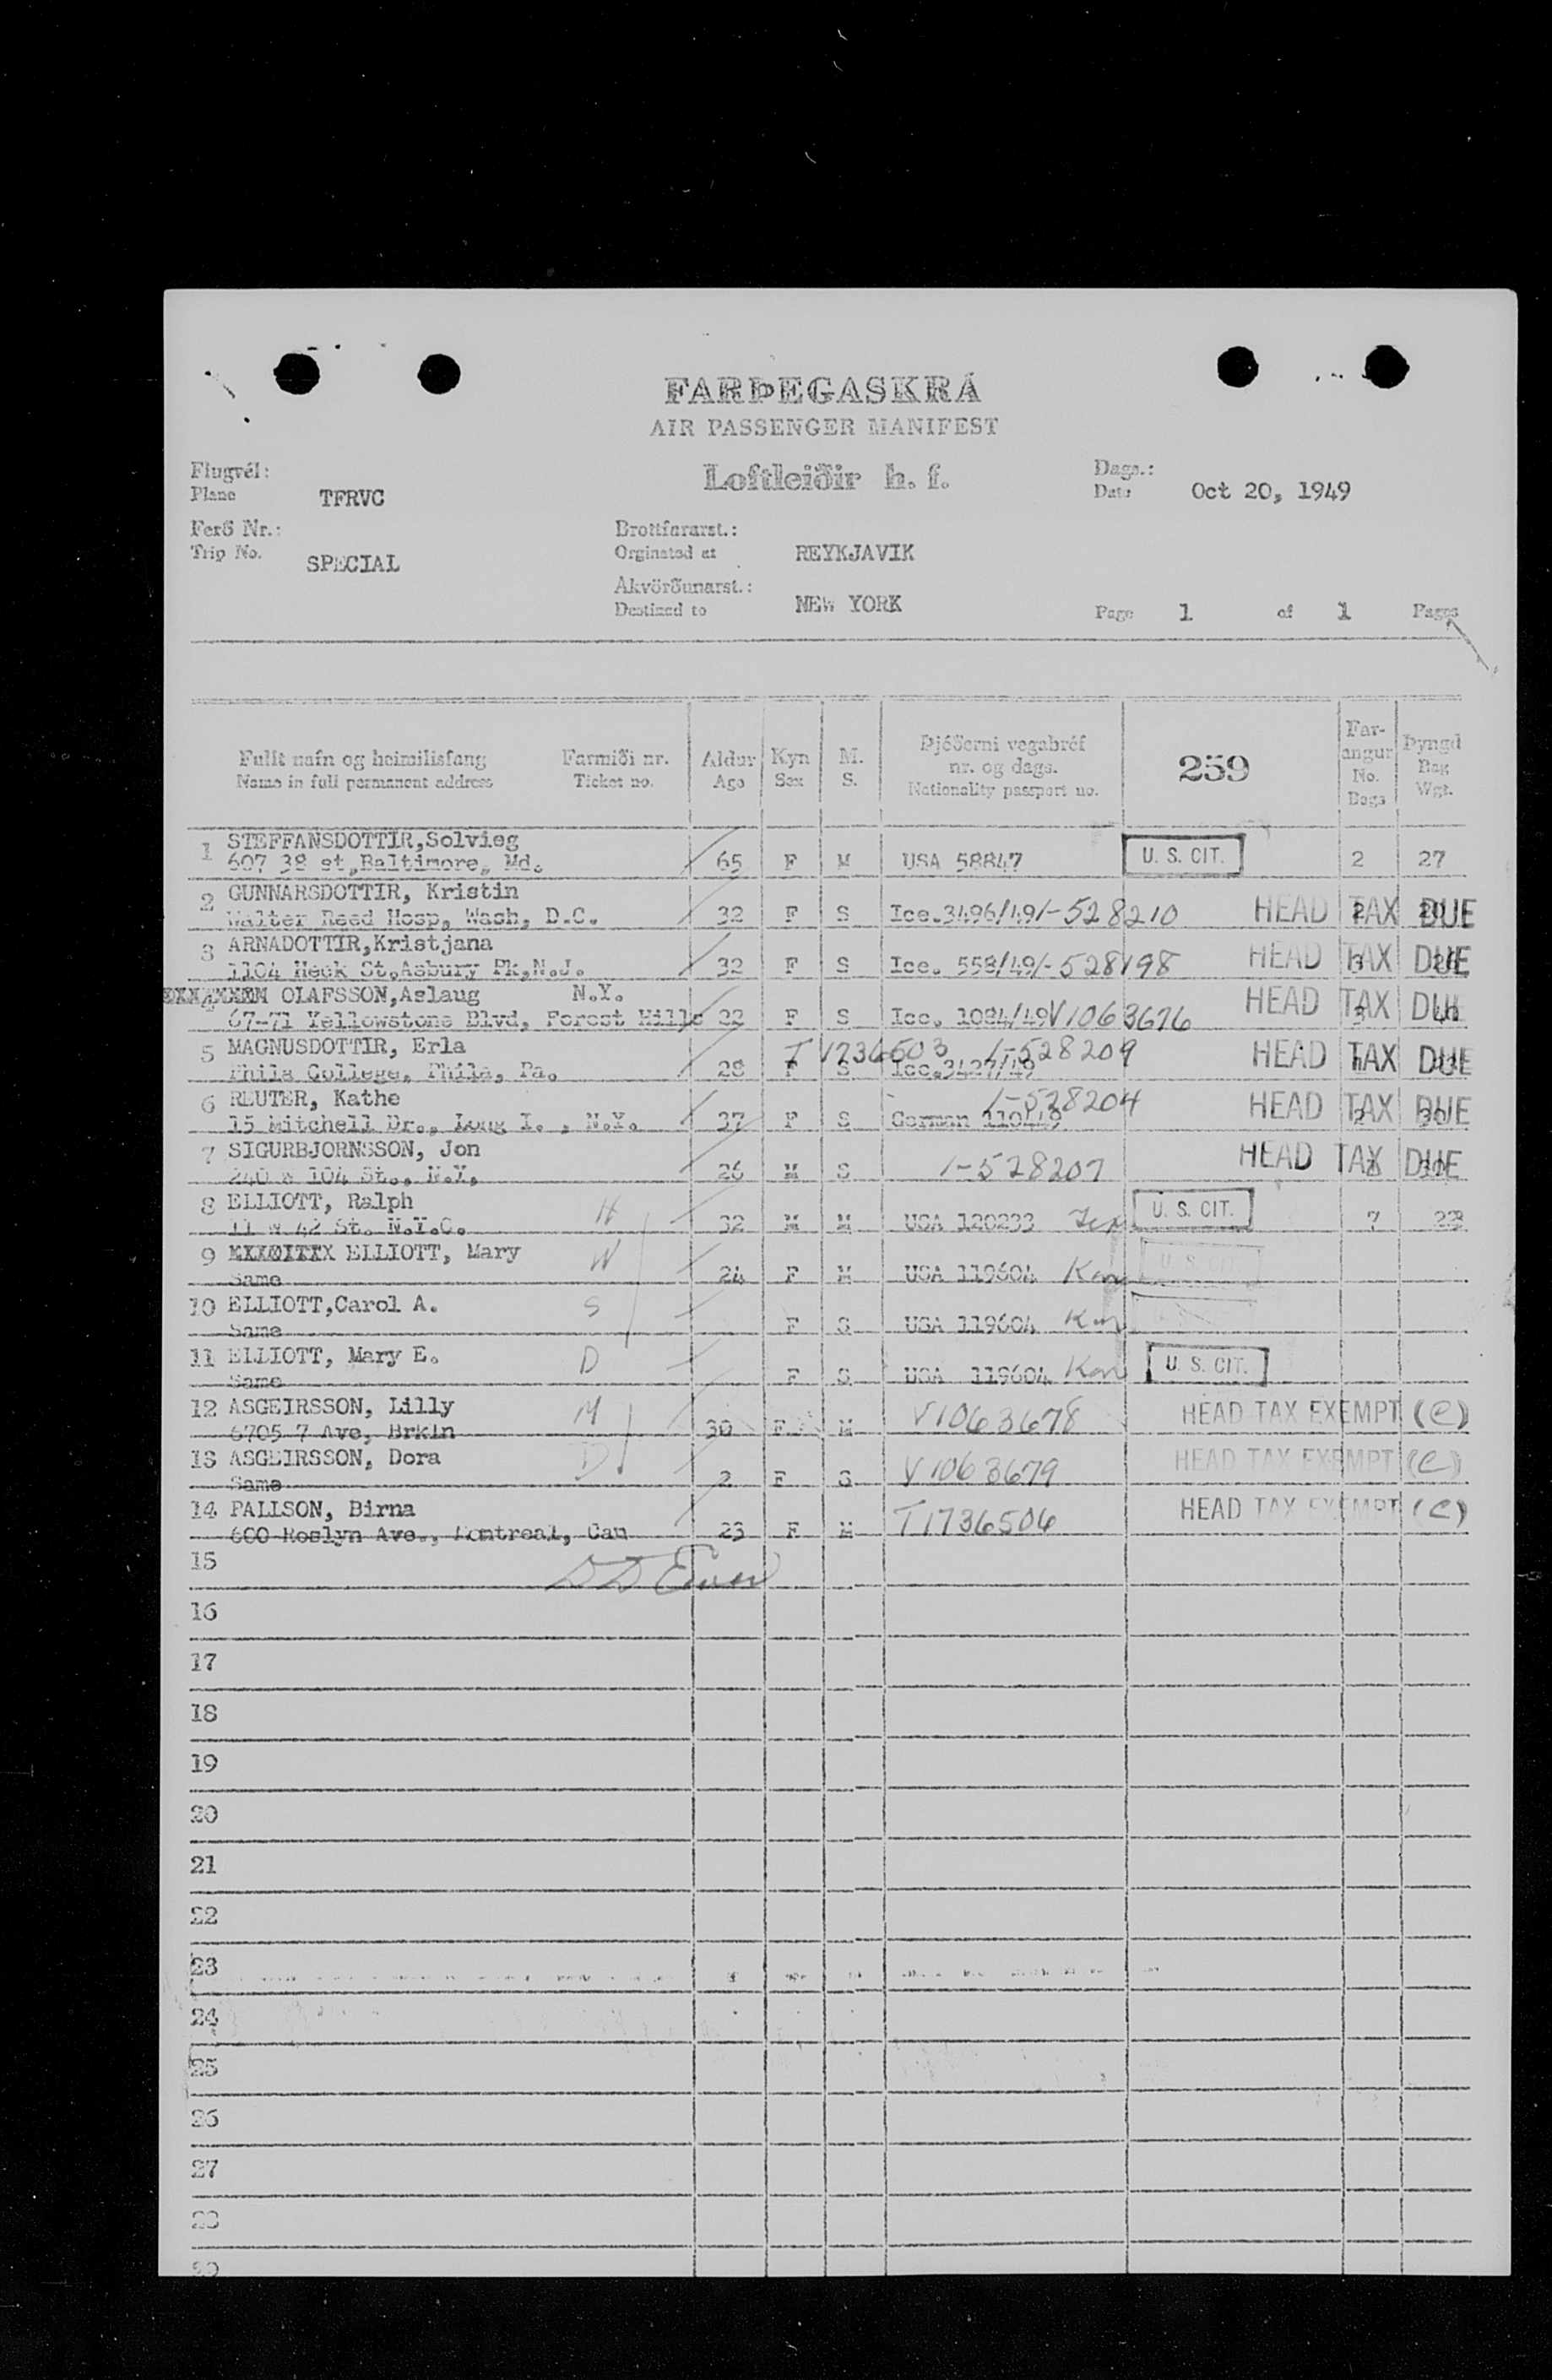 FARÞEGASKRÁ
AIR PASSENGER MANIFEST
Loftleiðir h. f.
Flugvél:
Plane TFRVC
Dags.:
Date Oct 20, 1949
Ferð Nr.:
Trip No. SPECIAL
Brottfararst.:
Orginated at REYKJAVIK
Akvörðunarst.:
Destined to NEW YORK
Page 1 of 1 Pages
Fullt nafn og heimilisfang
Name in full permanent address
Farmiði nr.
Ticket no.
Aldur
Age
Kyn
Sex
M.
S.
Þjóðerni vegabréf
nr. og dags.
Nationality passport no.
259
Far-
angur
No.
Bags
Þyngd
Bag
Wgt.
1 STEFFANSDOTTIR,Solvieg
607 38 st,Baltimore, Md. 65 F M USA 58847 U. S. CIT. 2 27
2 GUNNARSDOTTIR, Kristin
Walter Reed Hosp, Wash, D.C. 32 F S Ice.3496/49 1-528210 HEAD TAX DUE
3 ARNADOTTIR,Kristjana
1104 Heck St,Asbury Pk,N.J. 32 F S Ice. 558/49 1-528198 HEAD TAX DUE
4 OLAFSSON,Aslaug N.Y.
67-71 Yellowstone Blvd, Forest Hills 22 F S Ice. 1084/49 V1063676 HEAD TAX DUE
5 MAGNUSDOTTIR, Erla T V736503 1-528209
Phila College, Phila, Pa. 28 F S Ice.3427/49 HEAD TAX DUE
6 REUTER, Kathe 1-528204
15 Mitchell Dr., Long I. , N.Y. 37 F S German 110449 HEAD TAX DUE
7 SIGURBJORNSSON, Jon
240 W 104 St., N.Y. 26 M S 1-528207 HEAD TAX DUE
8 ELLIOTT, Ralph H
11 W 42 St. N.Y.C. 32 M M USA 120233 U. S. CIT. 7 23
9 ELLIOTT, Mary W
Same 24 F M USA 119604 U. S. CIT.
10 ELLIOTT,Carol A. S
Same F S USA 119604
11 ELLIOTT, Mary E. D
Same F S USA 119604 U. S. CIT.
12 ASGEIRSSON, Lilly M
6705 7 Ave, Brkln 30 F M V1063678 HEAD TAX EXEMPT (C)
13 ASGEIRSSON, Dora D
Same 2 F S V1063679 HEAD TAX EXEMPT (C)
14 PALLSON, Birna
600 Roslyn Ave., Montreal, Can 23 F M T1736504 HEAD TAX EXEMPT (C)
15
16
17
18
19
20
21
22
23
24
25
26
27
28